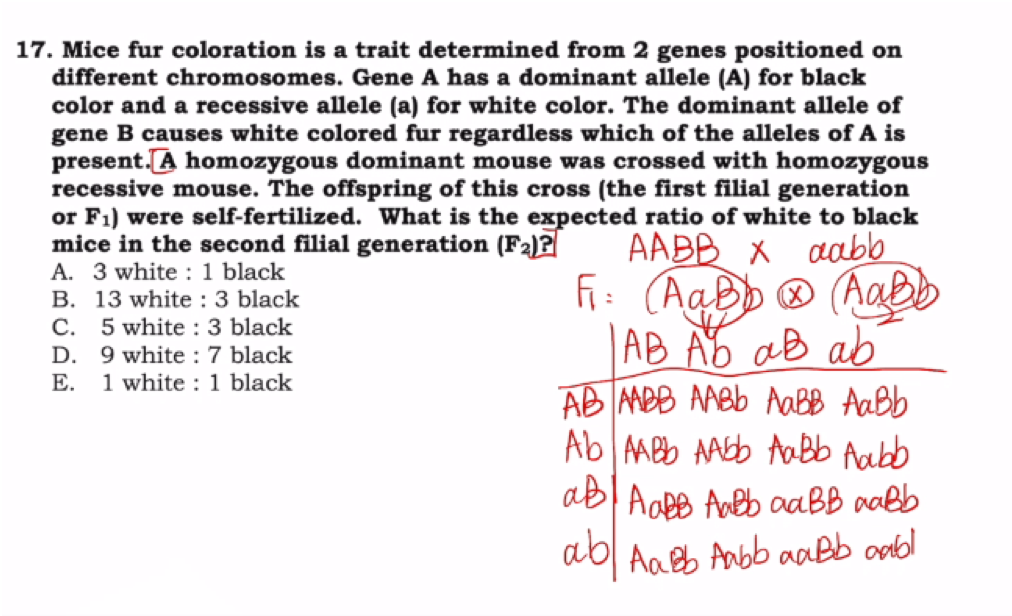 17. Mice fur coloration is a trait determined from 2 genes positioned on
different chromosomes. Gene A has a dominant allele (A) for black
color and a recessive allele (a) for white color. The dominant allele of
gene B causes white colored fur regardless which of the alleles of A is
present. A homozygous dominant mouse was crossed with homozygous
recessive mouse. The offspring of this cross (the first filial generation
or F₁) were self-fertilized. What is the expected ratio of white to black
mice in the second filial generation (F₂)?
A. 3 white : 1 black
B. 13 white : 3 black
C. 5 white : 3 black
D. 9 white : 7 black
E. 1 white : 1 black
AABB x aabb
F₁: (AaBb ⊗ (AaBb
AB Ab aB ab
AB AABB AABb AaBB AaBb
Ab AABb AAbb AaBb Aabb
aB AaBB AaBb aaBB aaBb
ab AaBb Aabb aaBb aabl